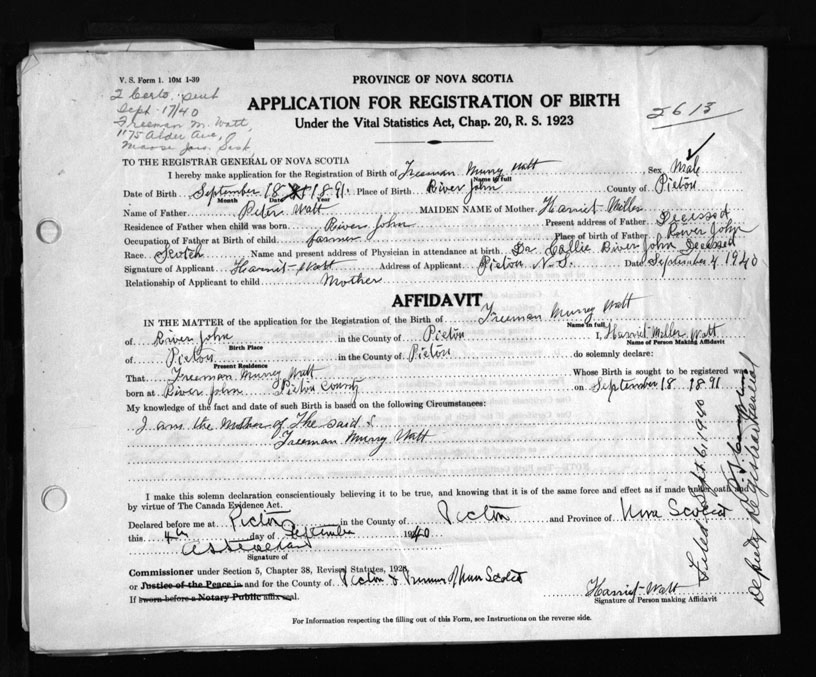 V. S. Form 1. 10M 1-39
2 Certs. sent
Sept. 17/40
Freeman M. Watt,
1175 Alder Ave,
Moose Jaw. Sask.
PROVINCE OF NOVA SCOTIA
APPLICATION FOR REGISTRATION OF BIRTH
Under the Vital Statistics Act, Chap. 20, R. S. 1923
2613
TO THE REGISTRAR GENERAL OF NOVA SCOTIA
I hereby make application for the Registration of Birth of Freeman Murry Watt Sex Male
Name in full
Date of Birth September 18 1891 Place of Birth River John County of Pictou
Month Date Year
Name of Father Peter Watt MAIDEN NAME of Mother Harriet Miller
Residence of Father when child was born River John Present address of Father Decessd
Occupation of Father at Birth of child farmer Place of birth of Father River John
Race Scotch Name and present address of Physician in attendance at birth Dr Collie River John Decessed
Signature of Applicant Harriet Watt Address of Applicant Pictou N.S. Date September 4 1940
Relationship of Applicant to child Mother
AFFIDAVIT
IN THE MATTER of the application for the Registration of the Birth of Freeman Murry Watt
Name in full
of River John in the County of Pictou I, Harriet Miller Watt
Birth Place Name of Person Making Affidavit
of Pictou in the County of Pictou do solemnly declare:
Present Residence
That Freeman Murry Watt Whose Birth is sought to be registered was
born at River John Pictou County on September 18 1891
My knowledge of the fact and date of such Birth is based on the following Circumstances:
I am the Mother of The said
Freeman Murry Watt
I make this solemn declaration conscientiously believing it to be true, and knowing that it is of the same force and effect as if made under oath and
by virtue of The Canada Evidence Act.
Declared before me at Pictou in the County of Pictou and Province of Nova Scotia
this 4th day of September 1940
Signature of
Commissioner under Section 5, Chapter 38, Revised Statutes, 1923
or Justice of the Peace in and for the County of Pictou & Province of Nova Scotia
If sworn before a Notary Public affix seal.
Harriet Watt
Signature of Person making Affidavit
For Information respecting the filling out of this Form, see Instructions on the reverse side.
Filed Sept 6, 1940
Deputy Registrar General